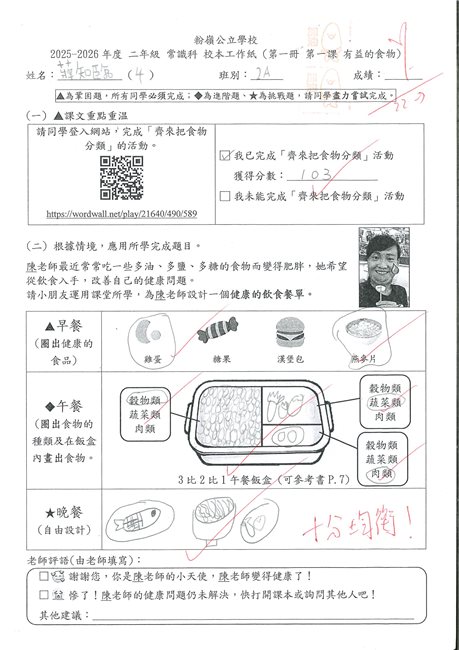 粉嶺公立學校
2025-2026 年度 二年級 常識科 校本工作紙 (第一冊 第一課 有益的食物)
姓名：蔣知臨 ( 4 ) 班別：2A 成績：
▲為鞏固題，所有同學必須完成；◆為進階題、★為挑戰題，請同學盡力嘗試完成。
(一) ▲課文重點重溫
請同學登入網站，完成「齊來把食物分類」的活動。
https://wordwall.net/play/21640/490/589
☑我已完成「齊來把食物分類」活動
獲得分數：103
□我未能完成「齊來把食物分類」活動
(二) 根據情境，應用所學完成題目。
陳老師最近常常吃一些多油、多鹽、多糖的食物而變得肥胖，她希望
從飲食入手，改善自己的健康問題。
請小朋友運用課堂所學，為陳老師設計一個健康的飲食餐單。
▲早餐
(圈出健康的
食品)
雞蛋 糖果 漢堡包 燕麥片
◆午餐
(圈出食物的
種類及在飯盒
內畫出食物。
穀物類
蔬菜類
肉類
穀物類
蔬菜類
肉類
穀物類
蔬菜類
肉類
3 比 2 比 1 午餐飯盒 (可參考書 P.7)
★晚餐
(自由設計)
十分均衡！
老師評語(由老師填寫)：
□ 謝謝您，你是陳老師的小天使，陳老師變得健康了！
□ 慘了！陳老師的健康問題仍未解決，快打開課本或詢問其他人吧！
其他建議：